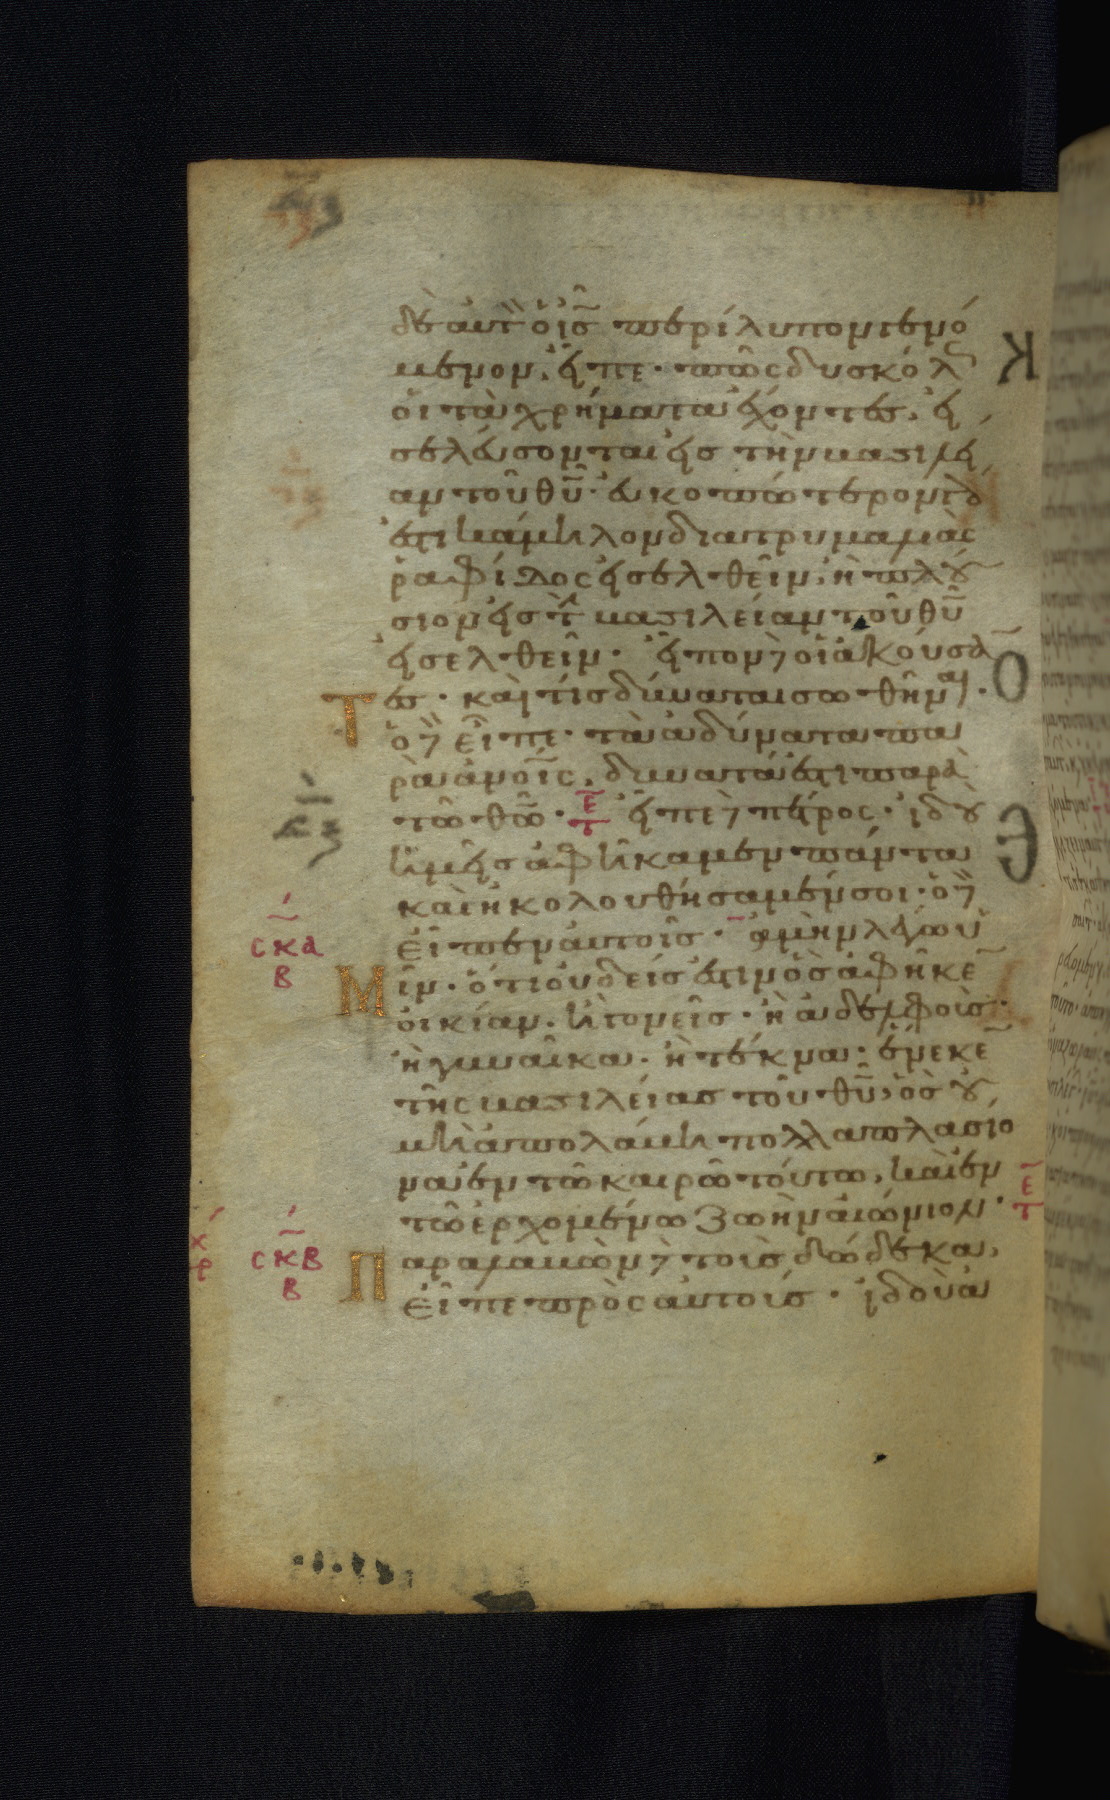 δὲ αὐτὸν ὁ ι̅ς̅ περίλυπον γενό
μενον, εἶπε· πῶς δυσκόλως
οἱ τὰ χρήματα ἔχοντες, εἰ
σελεύσονται εἰς τὴν βασιλεί
αν τοῦ θ̅υ̅· εὐκοπώτερον γάρ
ἐστι κάμηλον διὰ τρυμαλιᾶς
ῥαφίδος εἰσελθεῖν, ἢ πλού
σιον εἰς τὴν βασιλείαν τοῦ θ̅υ̅
εἰσελθεῖν· εἶπον δὲ οἱ ἀκούσαν
τες· καὶ τίς δύναται σωθῆναι·
Τ ὁ δὲ εἶπε· τὰ ἀδύνατα πα
ρὰ ἀν̅ο̅ι̅ς, δυνατά ἐστι παρὰ
τῶ θ̅ω̅· ε̅τ εἶπε δὲ πέτρος· ἰδοὺ
ἡμεῖς ἀφήκαμεν πάντα
καὶ ἠκολουθήσαμέν σοι· ὁ δὲ
σκα β εἶπεν αὐτοῖς· ἀμὴν λέγω ὑ
Μ ῖν· ὅτι οὐδείς ἐστιν ὃς ἀφῆκεν
οἰκίαν· ἢ γονεῖς· ἢ ἀδελφοὺς·
ἢ γυναῖκα· ἢ τέκνα· ἕνεκεν
τῆς βασιλείας τοῦ θ̅υ̅, ὃς οὐ
μὴ ἀπολάβη πολλαπλασίο
να ἐν τῶ καιρῶ τούτω, καὶ ἐν
τῶ ἐρχομένω ζωὴν αἰώνιον· ε̅τ
χρ σκβ β Π αραλαβὼν δὲ τοὺς δώδεκα,
εἶπε πρὸς αὐτούς· ἰδοὺ ἀ